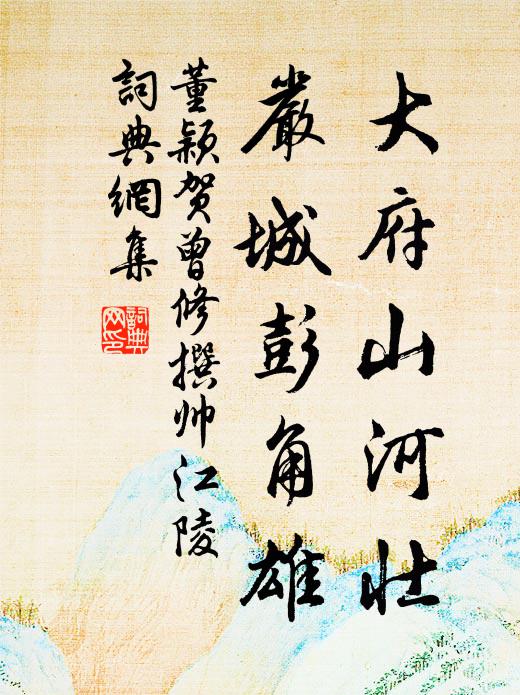 大府山河壮
嚴城彭角雄
董穎贺曾修撰帅江陵
詞典網集
詞典网印